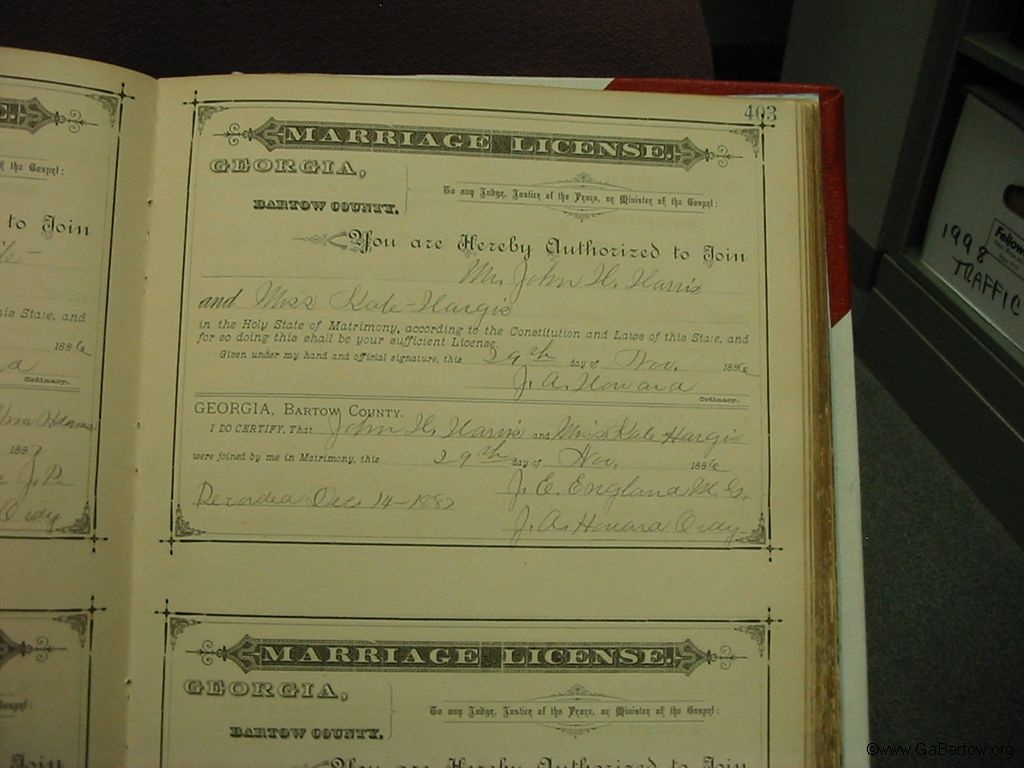 403
MARRIAGE LICENSE.
GEORGIA,
BARTOW COUNTY.
To any Judge, Justice of the Peace, or Minister of the Gospel:
You are Hereby Authorized to Join
Mr. John H. Harris
and Miss Kate Hargis
in the Holy State of Matrimony, according to the Constitution and Laws of this State, and
for so doing this shall be your sufficient License.
Given under my hand and official signature, this 29th day of Nov. 1886
J. A. Howard
Ordinary.
GEORGIA, BARTOW COUNTY.
I DO CERTIFY, That John H. Harris and Miss Kate Hargis
were joined by me in Matrimony, this 29th day of Nov. 1886
J. E. England M. G.
Recorded Dec 14-1887
J. A. Howard Ordy
MARRIAGE LICENSE.
GEORGIA,
BARTOW COUNTY.
To any Judge, Justice of the Peace, or Minister of the Gospel:
You are Hereby Authorized to Join
E.
of the Gospel:
to Join
State, and
1886
Ordinary.
Adams
1887
J. P.
Ordy
Gospel:
Join
Fellow
1998
TRAFFIC
©www.GaBartow.org